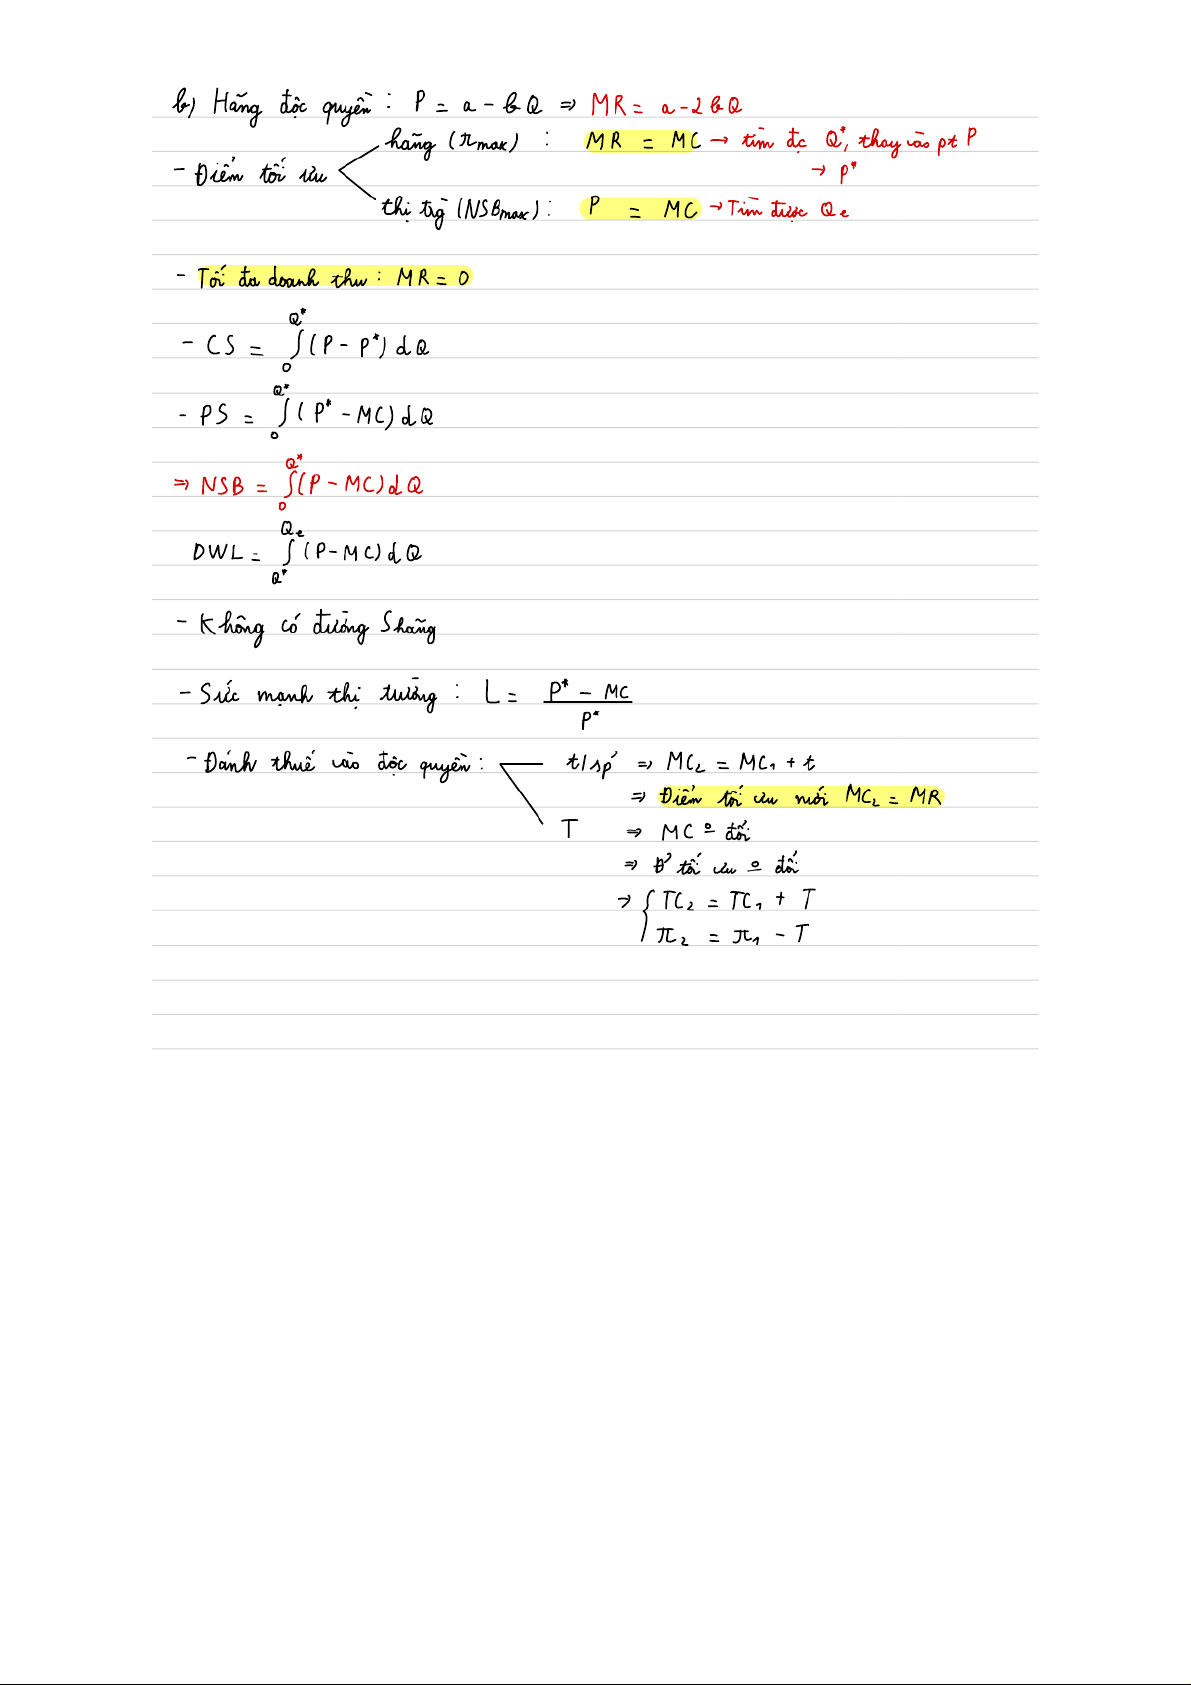 b) Hãng độc quyền : P = a - bQ => MR = a - 2bQ
- Điểm tối ưu
hãng (πmax) : MR = MC → tìm đc Q*, thay vào pt P
→ P*
thị trg (NSBmax) : P = MC → Tìm được Qe
- Tối đa doanh thu : MR = 0
- CS = ∫₀^Q* (P - P*) dQ
- PS = ∫₀^Q* (P* - MC) dQ
=> NSB = ∫₀^Q* (P - MC) dQ
DWL = ∫_Q*^Qe (P - MC) dQ
- Không có đường Shãng
- Sức mạnh thị trường : L = (P* - MC) / P*
- Đánh thuế vào độc quyền :
t/sp => MC₂ = MC₁ + t
=> Điểm tối ưu mới MC₂ = MR
T => MC o đổi
=> Đ' tối ưu o đổi
→ { TC₂ = TC₁ + T
π₂ = π₁ - T